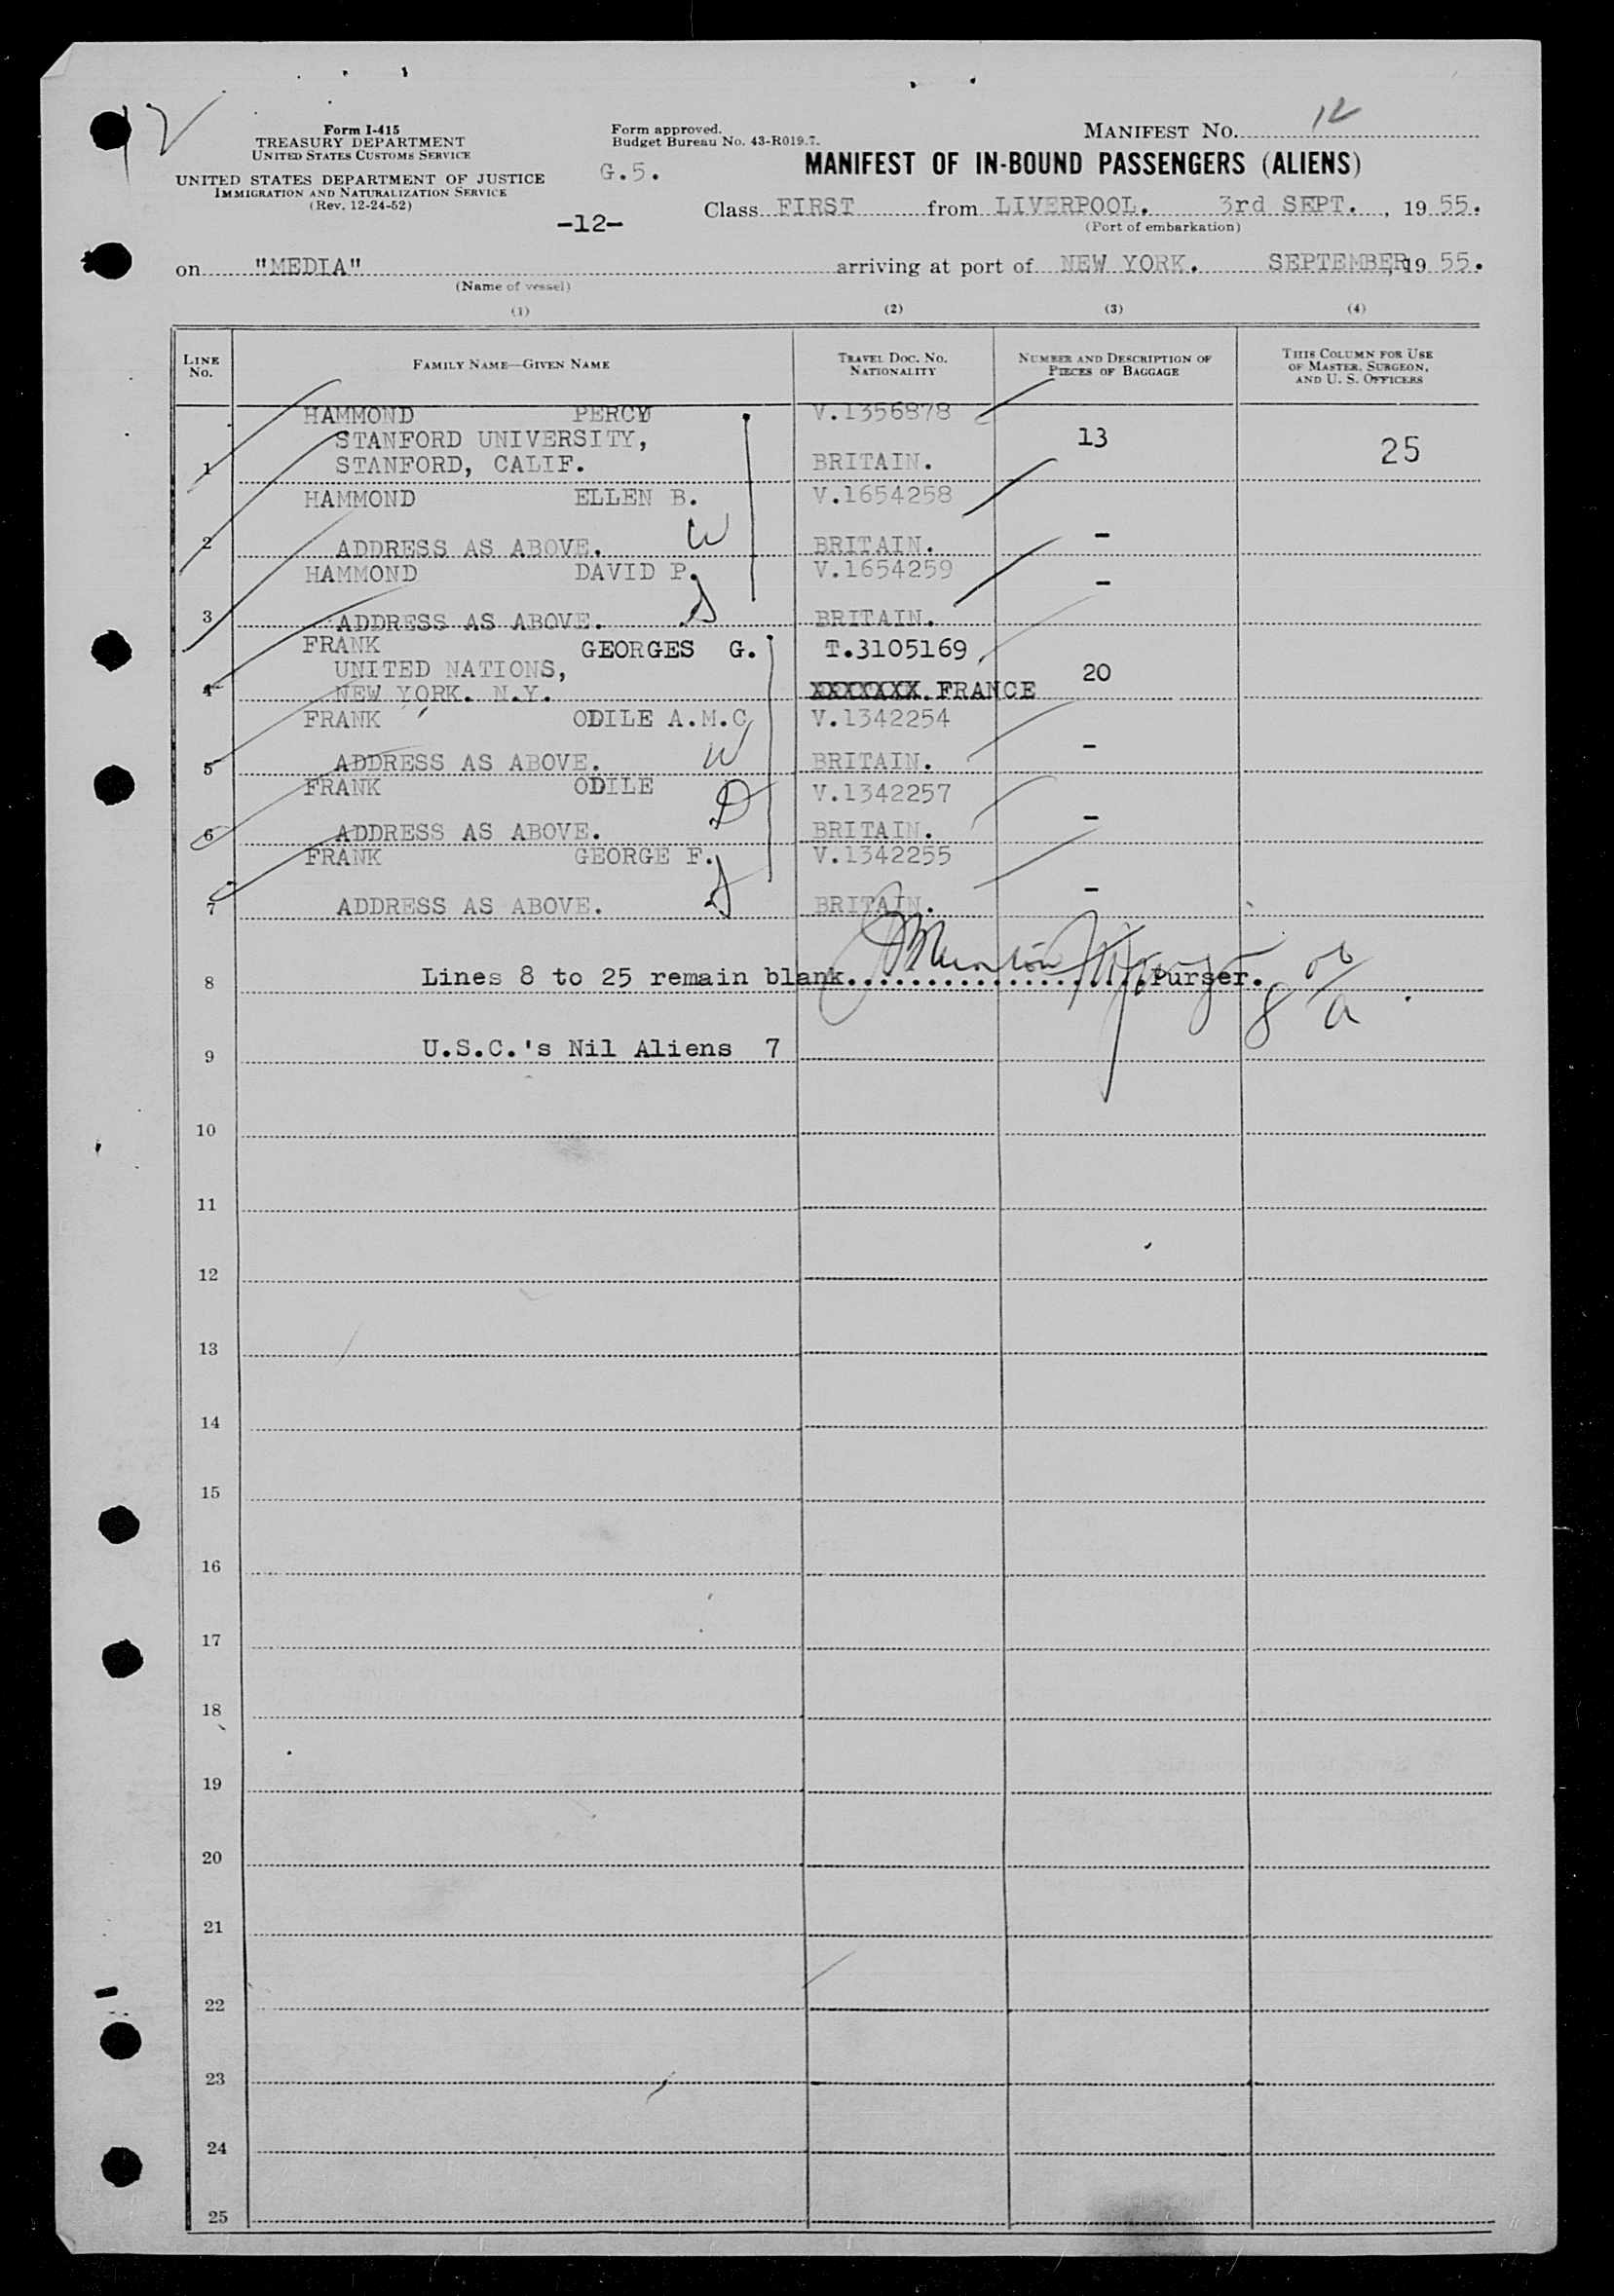 12
Form I-415
TREASURY DEPARTMENT
UNITED STATES CUSTOMS SERVICE
UNITED STATES DEPARTMENT OF JUSTICE
IMMIGRATION AND NATURALIZATION SERVICE
(Rev. 12-24-52)
Form approved.
Budget Bureau No. 43-R019.7.
G.5.
-12-
MANIFEST NO. 12
MANIFEST OF IN-BOUND PASSENGERS (ALIENS)
Class FIRST from LIVERPOOL. 3rd SEPT. , 19 55.
(Port of embarkation)
on "MEDIA" arriving at port of NEW YORK. SEPTEMBER, 19 55.
(Name of vessel)
(1) (2) (3) (4)
LINE NO. FAMILY NAME—GIVEN NAME TRAVEL DOC. NO. NATIONALITY NUMBER AND DESCRIPTION OF PIECES OF BAGGAGE THIS COLUMN FOR USE OF MASTER, SURGEON, AND U. S. OFFICERS
HAMMOND PERCY V.1356878
STANFORD UNIVERSITY, 13 25
1 STANFORD, CALIF. BRITAIN.
HAMMOND ELLEN B. V.1654258
2 ADDRESS AS ABOVE. W BRITAIN. -
HAMMOND DAVID P. V.1654259 -
3 ADDRESS AS ABOVE. S BRITAIN.
FRANK GEORGES G. T.3105169
UNITED NATIONS, 20
4 NEW YORK. N.Y. XXXXXXX.FRANCE
FRANK ODILE A.M.C. V.1342254
5 ADDRESS AS ABOVE. W BRITAIN. -
FRANK ODILE V.1342257
6 ADDRESS AS ABOVE. D BRITAIN. -
FRANK GEORGE F. V.1342255
7 ADDRESS AS ABOVE. S BRITAIN. -
8 Lines 8 to 25 remain blank....................Purser.
9 U.S.C.'s Nil Aliens 7
10
11
12
13
14
15
16
17
18
19
20
21
22
23
24
25